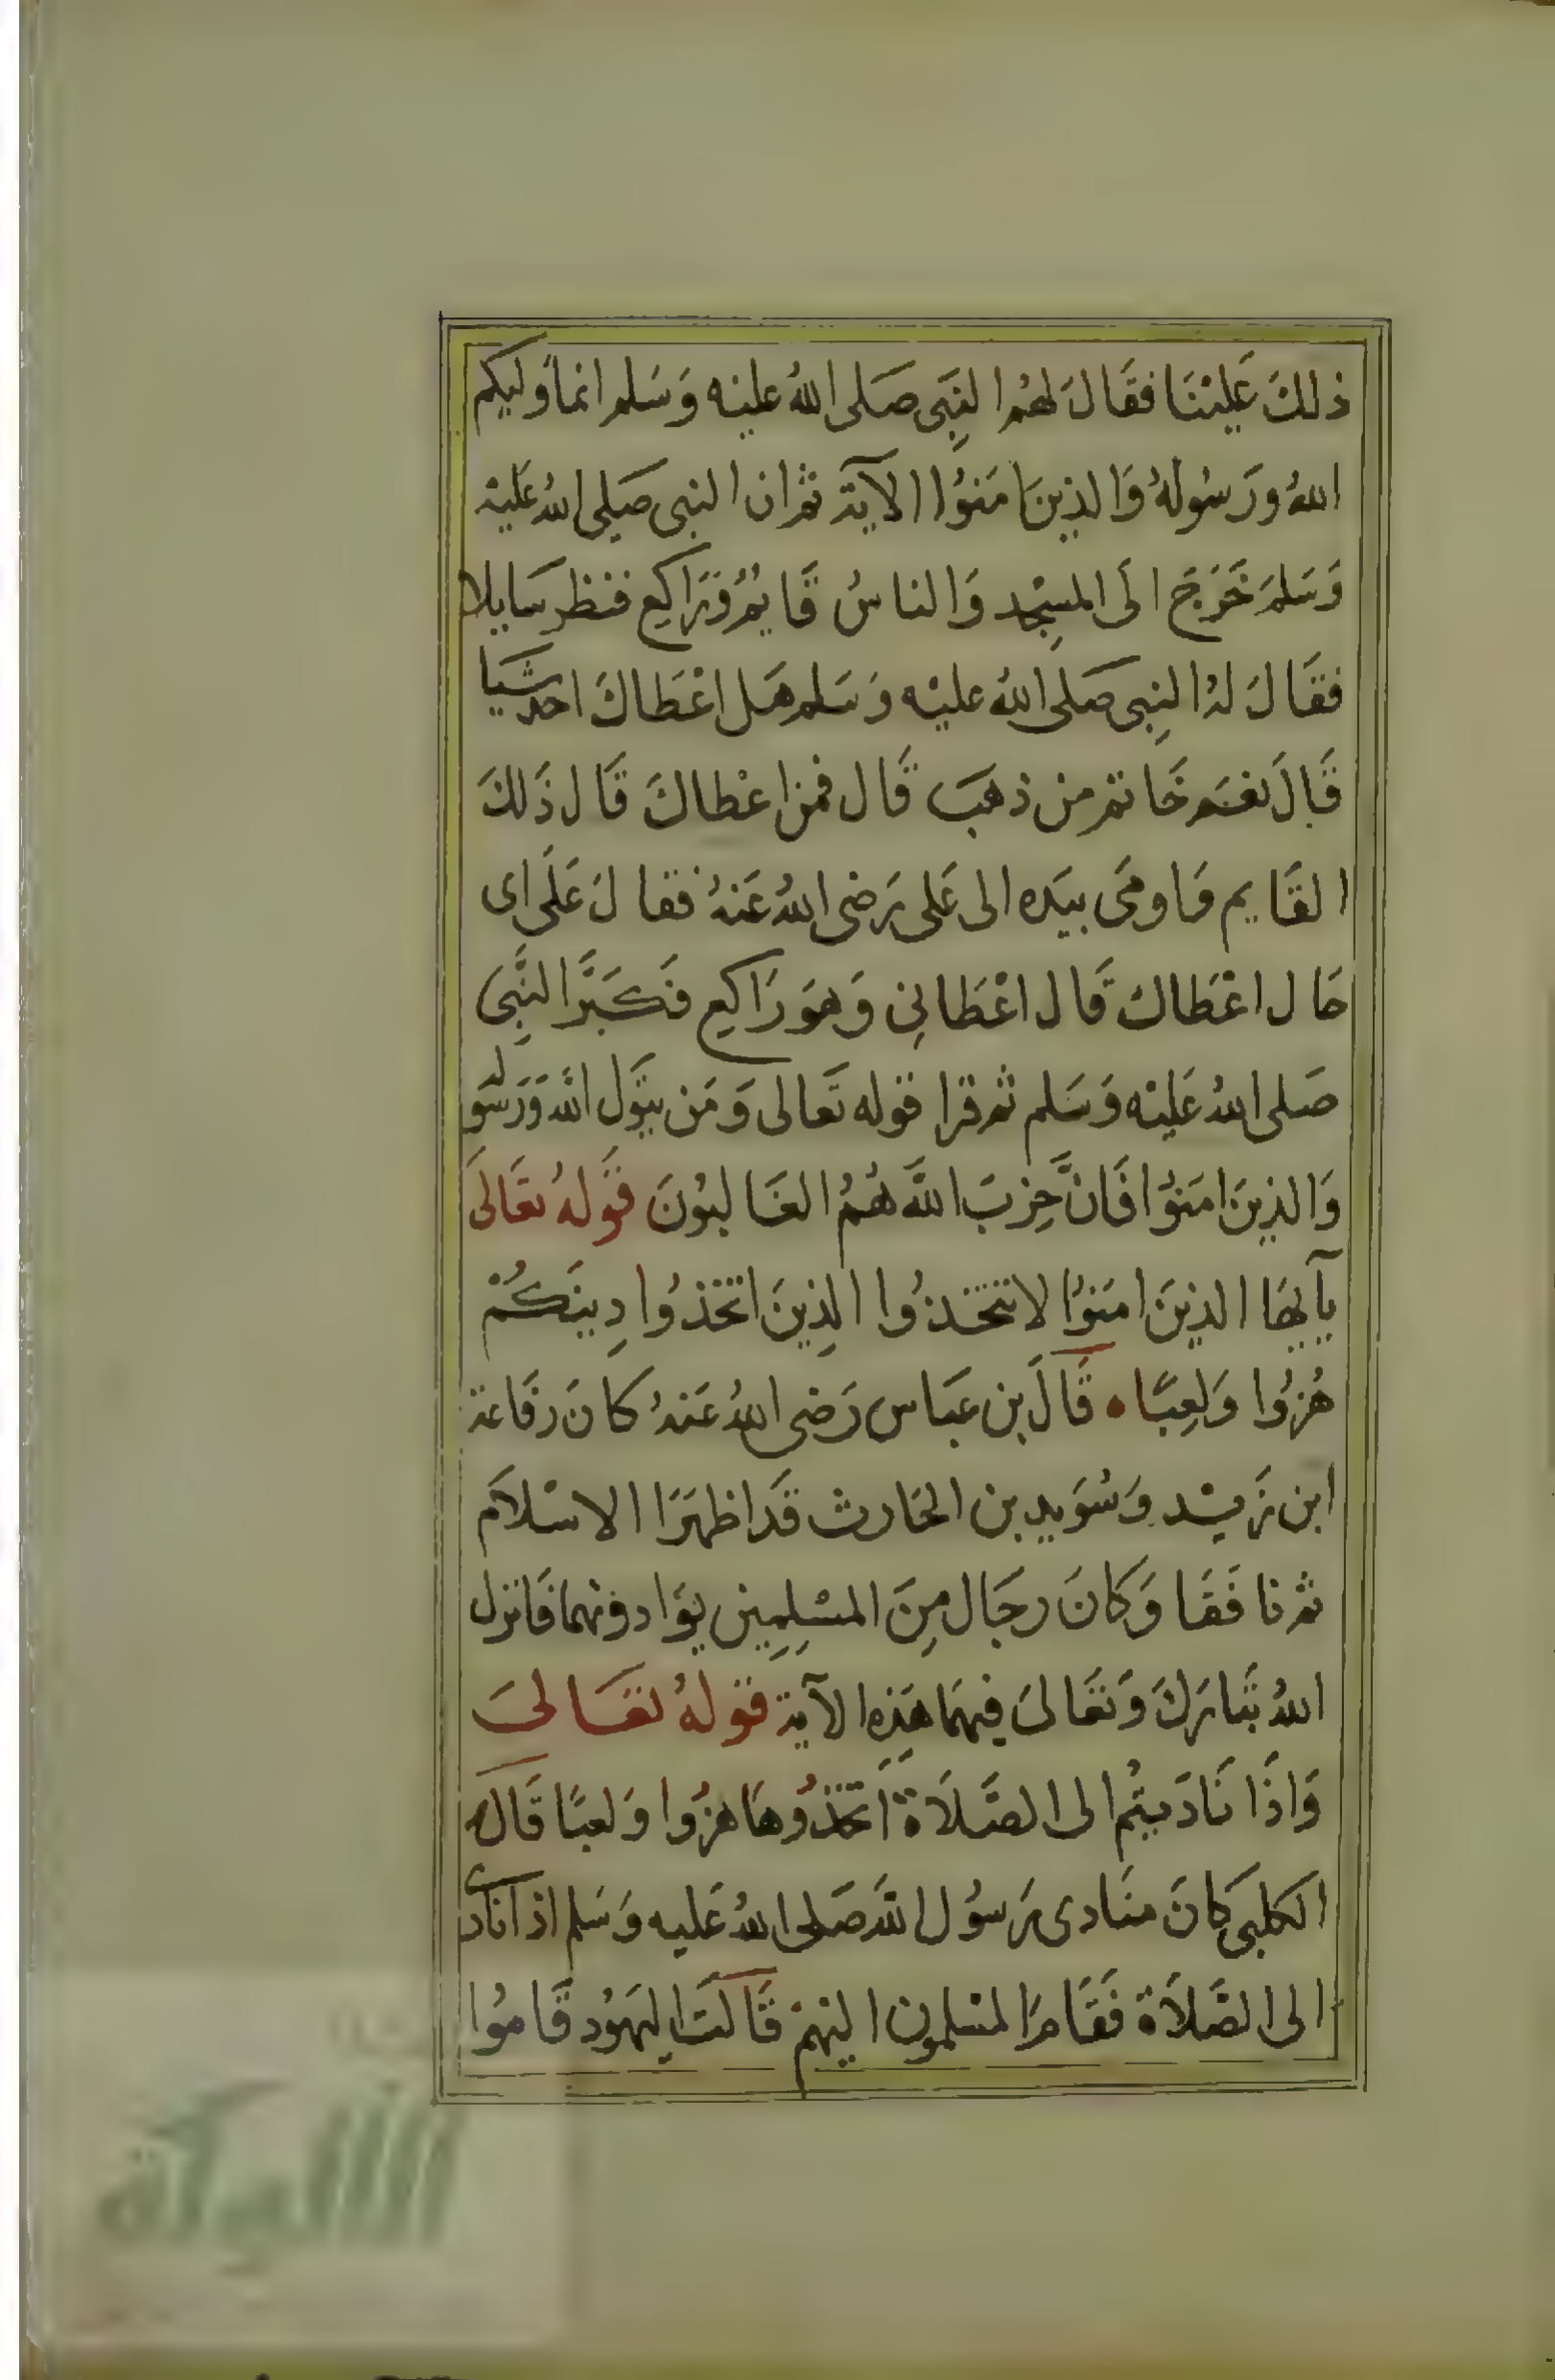 ذلكَ عَليْنَا فقَالَ لهُم النِبَى صَلى اللهُ علينه وَسَلم انما وليكم
اللهُ ورَسُولهُ وَالذينَ امَنوُا الآية ثم ان النبى صَلى اللهُ عَليْه
وَسَلمَ خَرَجَ الَى المسِجْد وَالناسُ قَايمُ وَرَاكِع فنظر سَايلا
فقَالَ لهُ النِبى صَلى اللهُ عليْه وَسَلم هَل اعْطَاكَ احد شَيا
قَالَ نعَم خَاتم من ذهَب قَال فمن اعْطاكَ قَال ذَلكَ
القَايم وَاومَى بيَده الى عَلى رَضى اللهُ عَنهُ فقالَ عَلَى اى
حَال اعْطَاكَ قَال اعْطَانِى وَهوَ رَاكِع فَكَبَّرَ النَّبِى
صَلى اللهُ عَليْه وَسَلم ثم قرا قوله تَعالى وَمَن يتوَل اللهَ وَرَسُوله
وَالذينَ امَنوُا فَانَّ حِزبَ اللَّهَ هُمُ الغَالبوُنَ قَولهُ تعَالَى
يآ ايهَا الذينَ امَنوُا لا تتخذوُا الذِينَ اتخذُوا دِينَكُمْ
هُزُوا وَلعِبًا ه قَالَ بن عَبَاس رَضى اللهُ عَنهُ كانَ رفَاعة
ابن زَيْد وَسُوَيد بن الحَارث قَد اظهَرَا الاسْلاَم
ثم نافَقَا وَكانَ رجَال مِنَ المسْلِمِين يوَادونهما فَانزل
اللهُ تبَاركَ وَتعَالىَ فيهمَا هَذِه الآية قولهُ تعَالىَ
وَاذَا نَادَيتُم الى الصَّلاَة اتخذُوهَا هزُوا وَلعبًا قَال
الكلبى كَانَ منَادى رَسوُل اللهَ صَلى اللهُ عَليه وَسَلم اذا نادى
الى الصَلاَة فَقَامَ المسْلمون اليهمْ قَالتَ اليهَوُد قَاموُا
الألوكة